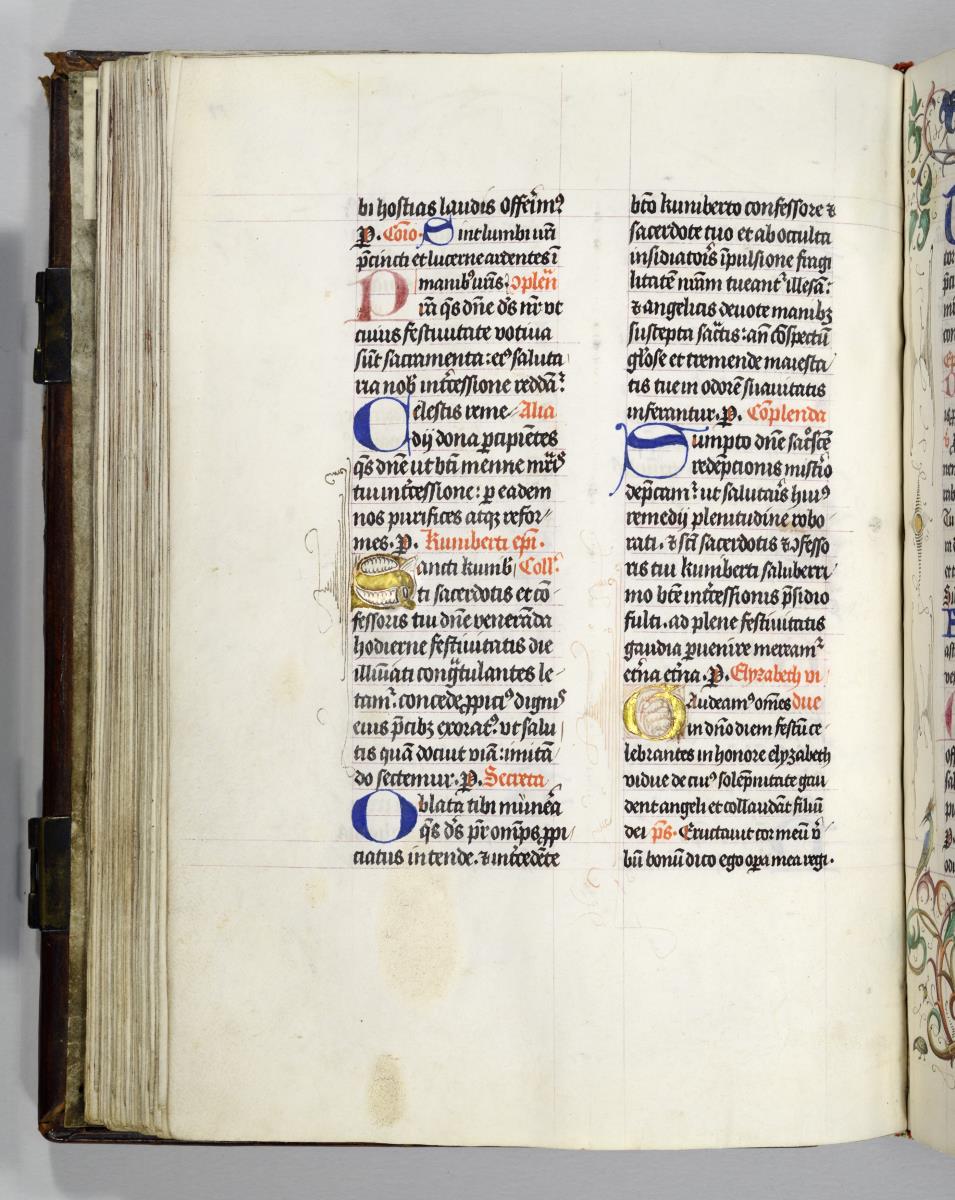 bi hostias laudis offerim⁹
P. Cōio. Sint lumbi ur̄i
p̄cincti et lucerne ardentes ī
manib⁹ ur̄is. Oplen̄
Pr̄a q̄s dn̄e d̄s nr̄ ut
cuius festiuitate votiua
sūt sacramenta: ei⁹ saluta
ria nob̄ int̄cessione reddāt̄
Celestis reme Alia
dij dona p̄cipiētes
q̄s dn̄e ut bt̄i menne mr̄is
tui int̄cessione: p eadem
nos purifices atqꝫ refor
mes. P. Kuniberti ep̄i.
Sancti kunib Coll̄
ti sacerdotis et cō
fessoris tui dn̄e venerāda
hodierne festiuitatis die
illūiati congr̄tulantes le
tam̄. concede ꝓpici⁹ digni⁹
eius p̄cibꝫ exorat⁹. ut salu
tis quā docuit viā: imitā
do sectemur. P. Secreta
Oblata tibi munēa
q̄s d̄s pr̄ omp̄s ꝓpi
ciatus intende. ⁊ int̄cedēte
bt̄o kuniberto confessore ⁊
sacerdote tuo et ab occulta
insidiatoris īpulsione fragi
litatē nr̄am tueant̄ illesā:
⁊ angelicis deuote manibꝫ
suscepta sāctis: an̄ cōspectū
gl̄ose et tremende maiesta
tis tue in odorē suauitatis
inferantur. P. Cōplenda
Sumpto dn̄e sac̄o scē
redēptionis mist̄io
dep̄cam̄: ut salutar̄s hui⁹
remedij plenitudine robo
rati. ⁊ sc̄i sacerdotis ⁊ ꝯfesso
ris tui kuniberti saluberri
mo bt̄e int̄cessionis p̄sidio
fulti. ad plene festiuitatis
gaudia puenire meream̄
et̄na et̄na. P. Elyzabeth vi
Gaudeam⁹ om̄es due
in dn̄o diem festū ce
lebrantes in honore elyzabeth
vidue de cui⁹ solēpnitate gau
dent angeli et collaudāt filiū
dei p̄s. Eructauit cor meū v̄
bū bonū dico ego opa mea regi.